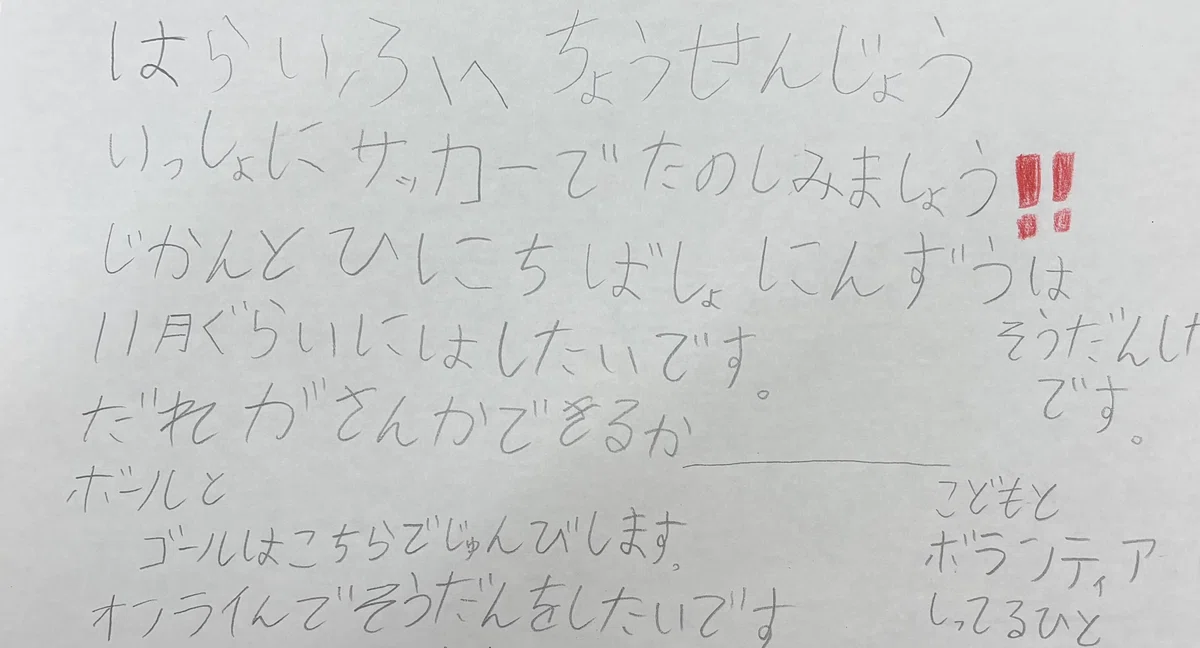 はらいふへ ちょうせんじょう
いっしょに サッカーで たのしみましょう!!
じかんと ひにこち ばしょ にんずうは
そうだんした
です。
11月ぐらいにはしたいです。
だれ が さんかできるか
こどもと
ボランティア
しってるひと
ボールと
ゴールはこちらでじゅんびします。
オンラインでそうだんをしたいです